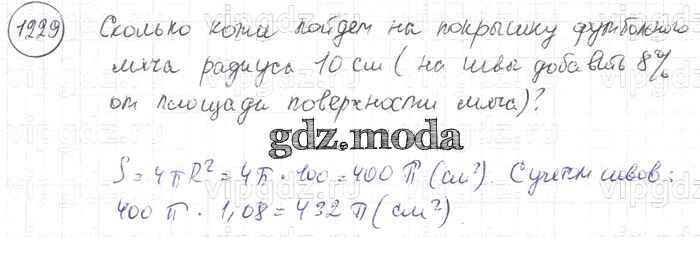 1229 Сколько кожи пойдет на покрышку футбольного
мяча радиуса 10 см (на швы добавить 8%
от площади поверхности мяча)?
gdz.moda
S = 4πR² = 4π · 100 = 400 π (см²). С учетом швов:
400 π · 1,08 = 432 π (см²)